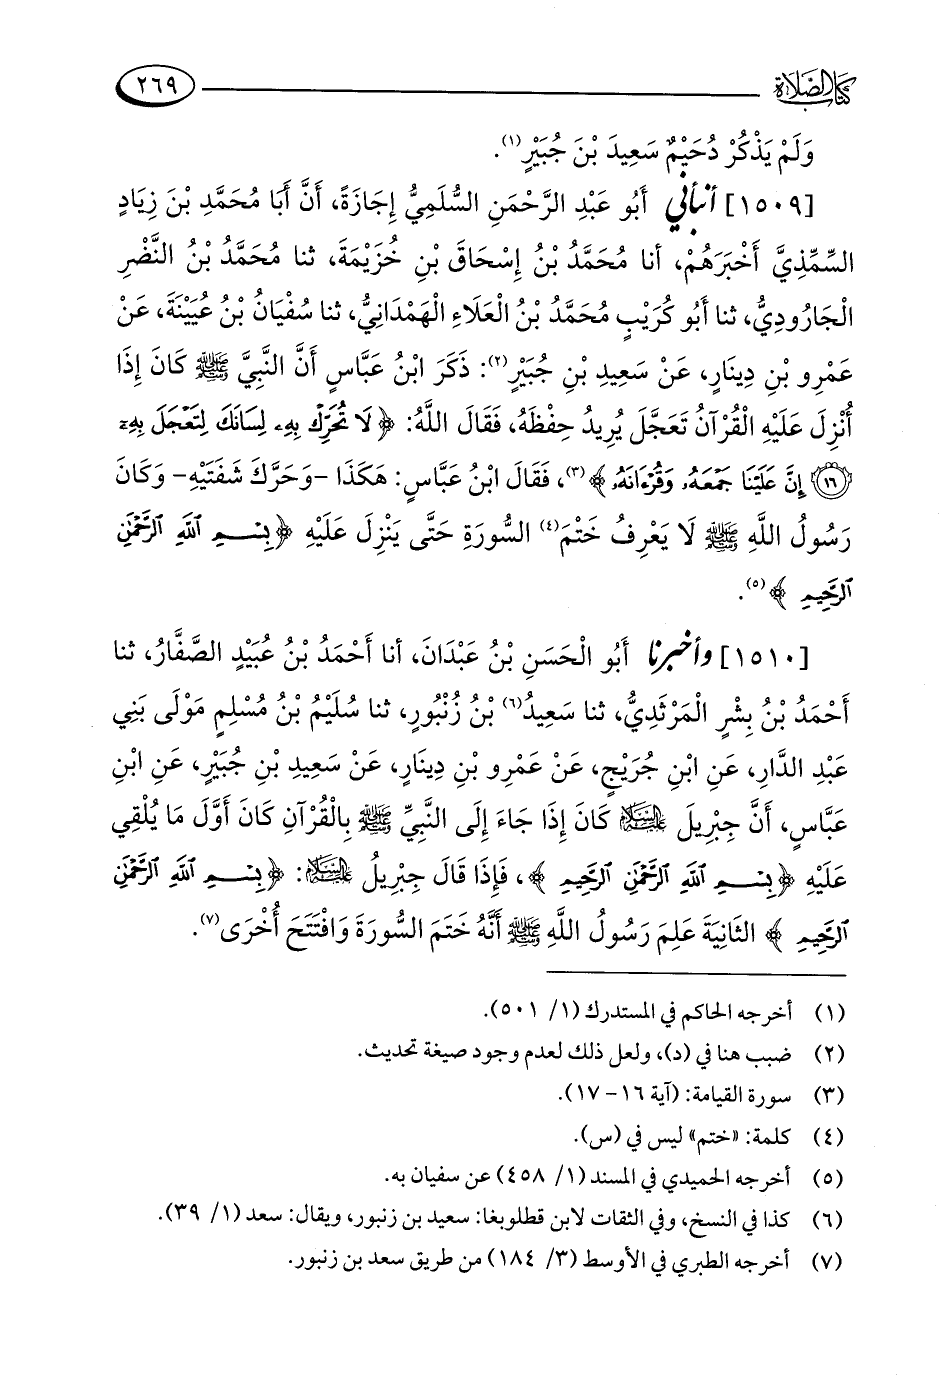 كتاب الصلاة ٢٦٩
وَلَمْ يَذْكُرْ دُحَيْمٌ سَعِيدَ بْنَ جُبَيْرٍ(١).
[١٥٠٩] أنبأني أَبُو عَبْدِ الرَّحْمَنِ السُّلَمِيُّ إِجَازَةً، أَنَّ أَبَا مُحَمَّدِ بْنَ زِيَادٍ
السِّمِّذِيَّ أَخْبَرَهُمْ، أنا مُحَمَّدُ بْنُ إِسْحَاقَ بْنِ خُزَيْمَةَ، ثنا مُحَمَّدُ بْنُ النَّضْرِ
الْجَارُودِيُّ، ثنا أَبُو كُرَيْبٍ مُحَمَّدُ بْنُ الْعَلَاءِ الْهَمْدَانِيُّ، ثنا سُفْيَانُ بْنُ عُيَيْنَةَ، عَنْ
عَمْرِو بْنِ دِينَارٍ، عَنْ سَعِيدِ بْنِ جُبَيْرٍ(٢): ذَكَرَ ابْنُ عَبَّاسٍ أَنَّ النَّبِيَّ ﷺ كَانَ إِذَا
أُنْزِلَ عَلَيْهِ الْقُرْآنُ تَعَجَّلَ يُرِيدُ حِفْظَهُ، فَقَالَ اللَّهُ: ﴿ لَا تُحَرِّكْ بِهِۦ لِسَانَكَ لِتَعْجَلَ بِهِۦٓ
(١٦) إِنَّ عَلَيْنَا جَمْعَهُۥ وَقُرْءَانَهُۥ ﴾(٣)، فَقَالَ ابْنُ عَبَّاسٍ: هَكَذَا -وَحَرَّكَ شَفَتَيْهِ- وَكَانَ
رَسُولُ اللَّهِ ﷺ لَا يَعْرِفُ خَتْمَ(٤) السُّورَةِ حَتَّى يَنْزِلَ عَلَيْهِ ﴿ بِسْمِ ٱللَّهِ ٱلرَّحْمَٰنِ
ٱلرَّحِيمِ ﴾(٥).
[١٥١٠] وأخبرنا أَبُو الْحَسَنِ بْنُ عَبْدَانَ، أنا أَحْمَدُ بْنُ عُبَيْدٍ الصَّفَّارُ، ثنا
أَحْمَدُ بْنُ بِشْرٍ الْمَرْثَدِيُّ، ثنا سَعِيدُ(٦) بْنُ زُنْبُورٍ، ثنا سُلَيْمُ بْنُ مُسْلِمٍ مَوْلَى بَنِي
عَبْدِ الدَّارِ، عَنِ ابْنِ جُرَيْجٍ، عَنْ عَمْرِو بْنِ دِينَارٍ، عَنْ سَعِيدِ بْنِ جُبَيْرٍ، عَنِ ابْنِ
عَبَّاسٍ، أَنَّ جِبْرِيلَ عليه السلام كَانَ إِذَا جَاءَ إِلَى النَّبِيِّ ﷺ بِالْقُرْآنِ كَانَ أَوَّلَ مَا يُلْقِي
عَلَيْهِ ﴿ بِسْمِ ٱللَّهِ ٱلرَّحْمَٰنِ ٱلرَّحِيمِ ﴾، فَإِذَا قَالَ جِبْرِيلُ عليه السلام: ﴿ بِسْمِ ٱللَّهِ ٱلرَّحْمَٰنِ
ٱلرَّحِيمِ ﴾ الثَّانِيَةَ عَلِمَ رَسُولُ اللَّهِ ﷺ أَنَّهُ خَتَمَ السُّورَةَ وَافْتَتَحَ أُخْرَى(٧).
(١) أخرجه الحاكم في المستدرك (١/ ٥٠١).
(٢) ضبب هنا في (د)، ولعل ذلك لعدم وجود صيغة تحديث.
(٣) سورة القيامة: (آية ١٦-١٧).
(٤) كلمة: «ختم» ليس في (س).
(٥) أخرجه الحميدي في المسند (١/ ٤٥٨) عن سفيان به.
(٦) كذا في النسخ، وفي الثقات لابن قطلوبغا: سعيد بن زنبور، ويقال: سعد (١/ ٣٩).
(٧) أخرجه الطبري في الأوسط (٣/ ١٨٤) من طريق سعد بن زنبور.